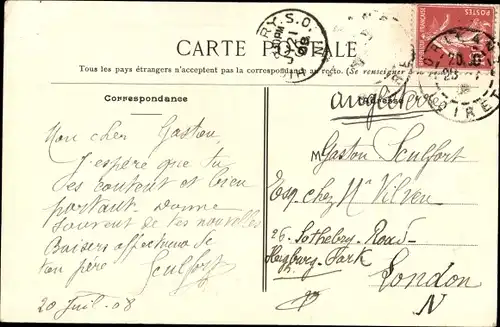 CARTE POSTALE
Tous les pays étrangers n'acceptent pas la correspondance au recto. (Se renseigner à la
Correspondance
Adresse
Angleterre
Mon cher Gaston
J'espère que tu
es content et bien
portant. Donne
souvent de tes nouvelles
Baisers affectueux de
ton père Sculfort
20 Juil. 08
M Gaston Sculfort
Esq. chez Mr Vilven
26 Sotheby Road
Highbury Park
London
N
RY.S.O.
POSTES
LOIRET